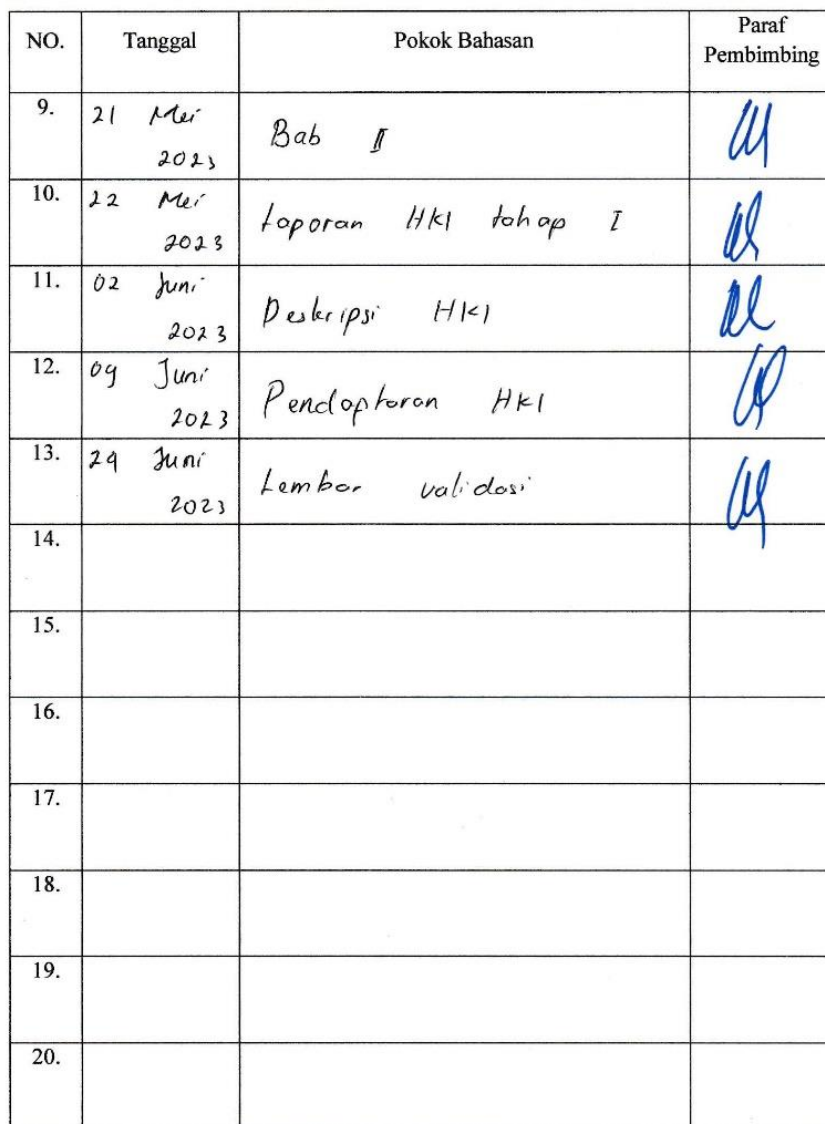 NO. Tanggal Pokok Bahasan Paraf Pembimbing
9. 21 Mei 2023 Bab II
10. 22 Mei 2023 Laporan HKI tahap I
11. 02 Juni 2023 Deskripsi HKI
12. 09 Juni 2023 Pendaptaran HKI
13. 29 Juni 2023 Lembar validasi
14.
15.
16.
17.
18.
19.
20.